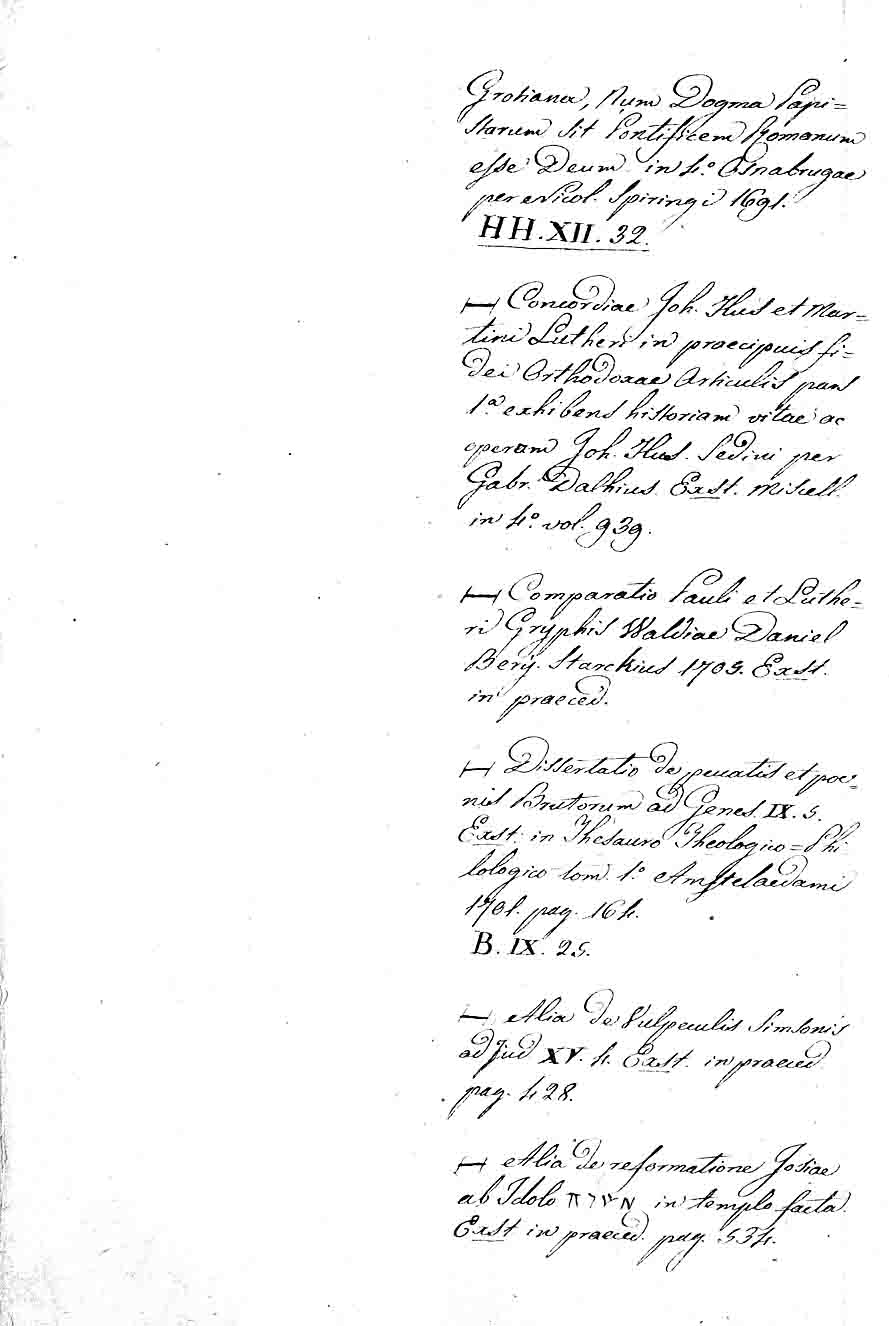 Grotiana, Num Dogma Papi=
starum sit Pontificem Romanum
esse Deum in 4.º Osnabrugae
per Nicol. Spiringi 1691.
HH. XII. 32.
⊢⊣ Concordiae Joh. Hus et Mar=
tini Lutheri in praecipuis fi=
dei Orthodoxae Articulis pars
1.ª exhibens historiam vitae ac
operam Joh. Hus. Sedini per
Gabr. Dalhius. Exst. Miscell.
in 4.º vol. 939.
⊢⊣ Comparatio Pauli et Luthe=
ri Gryphis Waldiae Daniel
Berij. Starckius 1705. Exst.
in praeced.
⊢⊣ Dissertatio de peccatis et poe=
nis Brutorum ad Genes. IX. 5.
Exst. in Thesauro Theologico=Phi
lologico tom. 1.º Amstelaedami
1701. pag. 164.
B. IX. 25.
⊢⊣ Alia de Vulpeculis Simsonis
ad Jud XV. 4. Exst. in praeced
pag. 428.
⊢⊣ Alia de reformatione Josiae
ab Idolo in templo facta.
Exst in praeced. pag. 534.